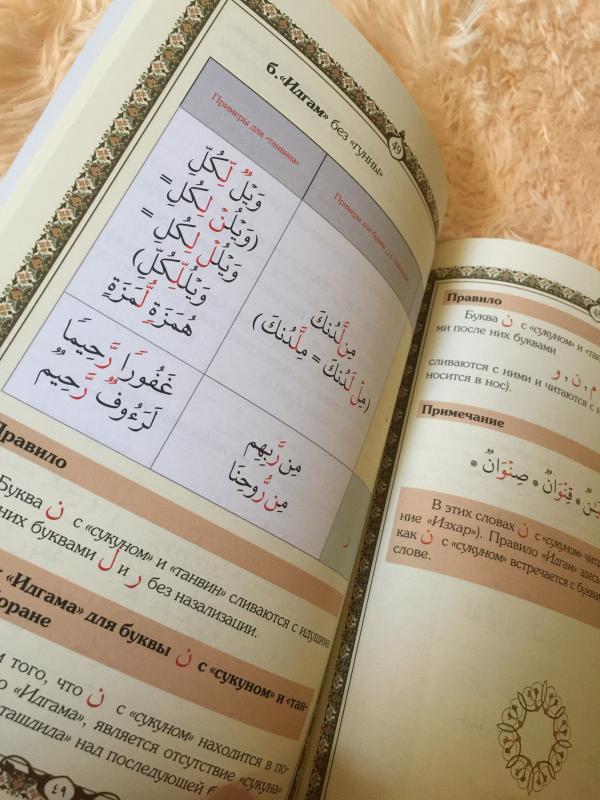 49
б. «Идгам» без «гунны»
Примеры для «танвина»
وَيْلٌ لِّكُلِّ
(وَيْلُنْ لِكُلِّ =
وَيْلُلْ لِكُلِّ =
وَيْلُلِّكُلِّ)
هُمَزَةٍ لُّمَزَةٍ
مِن لَّدُنكَ
(مِلْ لَدُنكَ = مِلَّدُنكَ)
غَفُورًا رَّحِيمًا
لَرَءُوفٌ رَّحِيمٌ
مِن رَّبِّهِم
مِن رُّوحِنَا
ر
Правило
Буква ن с «сукуном» и «танвин» сливаются с идущими
них буквами ل и ر без назализации.
«Идгама» для буквы ن с «сукуном» и «тан-
оране
того, что ن с «сукуном» находится в по-
«Идгама», является отсутствие «сукуна»
«ташдида» над последующей
٤٩
Правило
Буква ن с «сукуном» и «тан
ми после них буквами
م , ن , و
сливаются с ними и читаются с
носится в нос).
Примечание
قِنْوَانٌ * صِنْوَانٌ *
В этих словах ن с «сукуном» чита
ние «Изхар»). Правило «Идгам» здесь
как ن с «сукуном» встречается с буквам
слове.